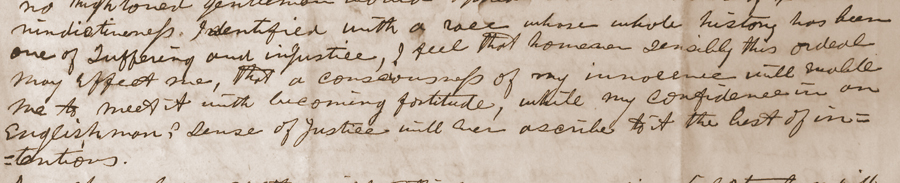 no high toned gentleman would
vindictiveness. Identified with a race whose whole history has been
one of Suffering and injustice, I feel that however sensibly this ordeal
may Effect me, that a consciousness of my innocence will enable
me to meet it with becoming fortitude, while my confidence in an
Englishman's Sense of Justice will ever ascribe to it the best of in=
=tentions.